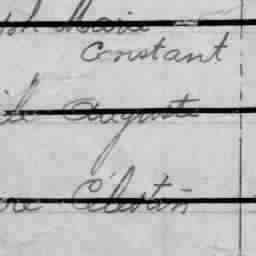 Marie
Constant
Auguste
Célestin